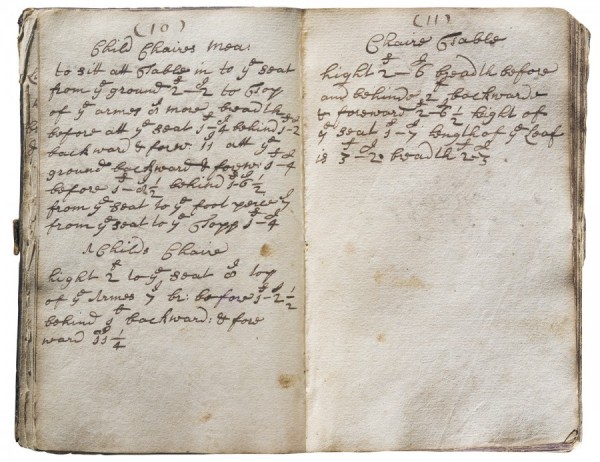 (10)
Child Chaires Meas
to sitt att Table in to yᵉ seat
from yᵉ ground 2-2 to Topp
of yᵉ armes 8 more breadth
before att yᵉ seat 1-4 behind 1-2
backward & forw: 11 att yᵉ
ground backward & forw: 1-4
before 1-8½ behind 1-6½
from yᵉ seat to yᵉ foot peice
from yᵉ seat to yᵉ Topp 1-4
A Childs Chaire
hight 2 to yᵉ seat 8 top
of yᵉ Armes 7 br: before 1-2½
behind 1 backward: & fore
ward 11¼
(11)
Chaire Table
hight 2-6 breadth before
and behinde 2 backward
& foreward 2-6½ hight of
yᵉ seat 1-7 Length of yᵉ Leaf
is 3-2 breadth 2-3